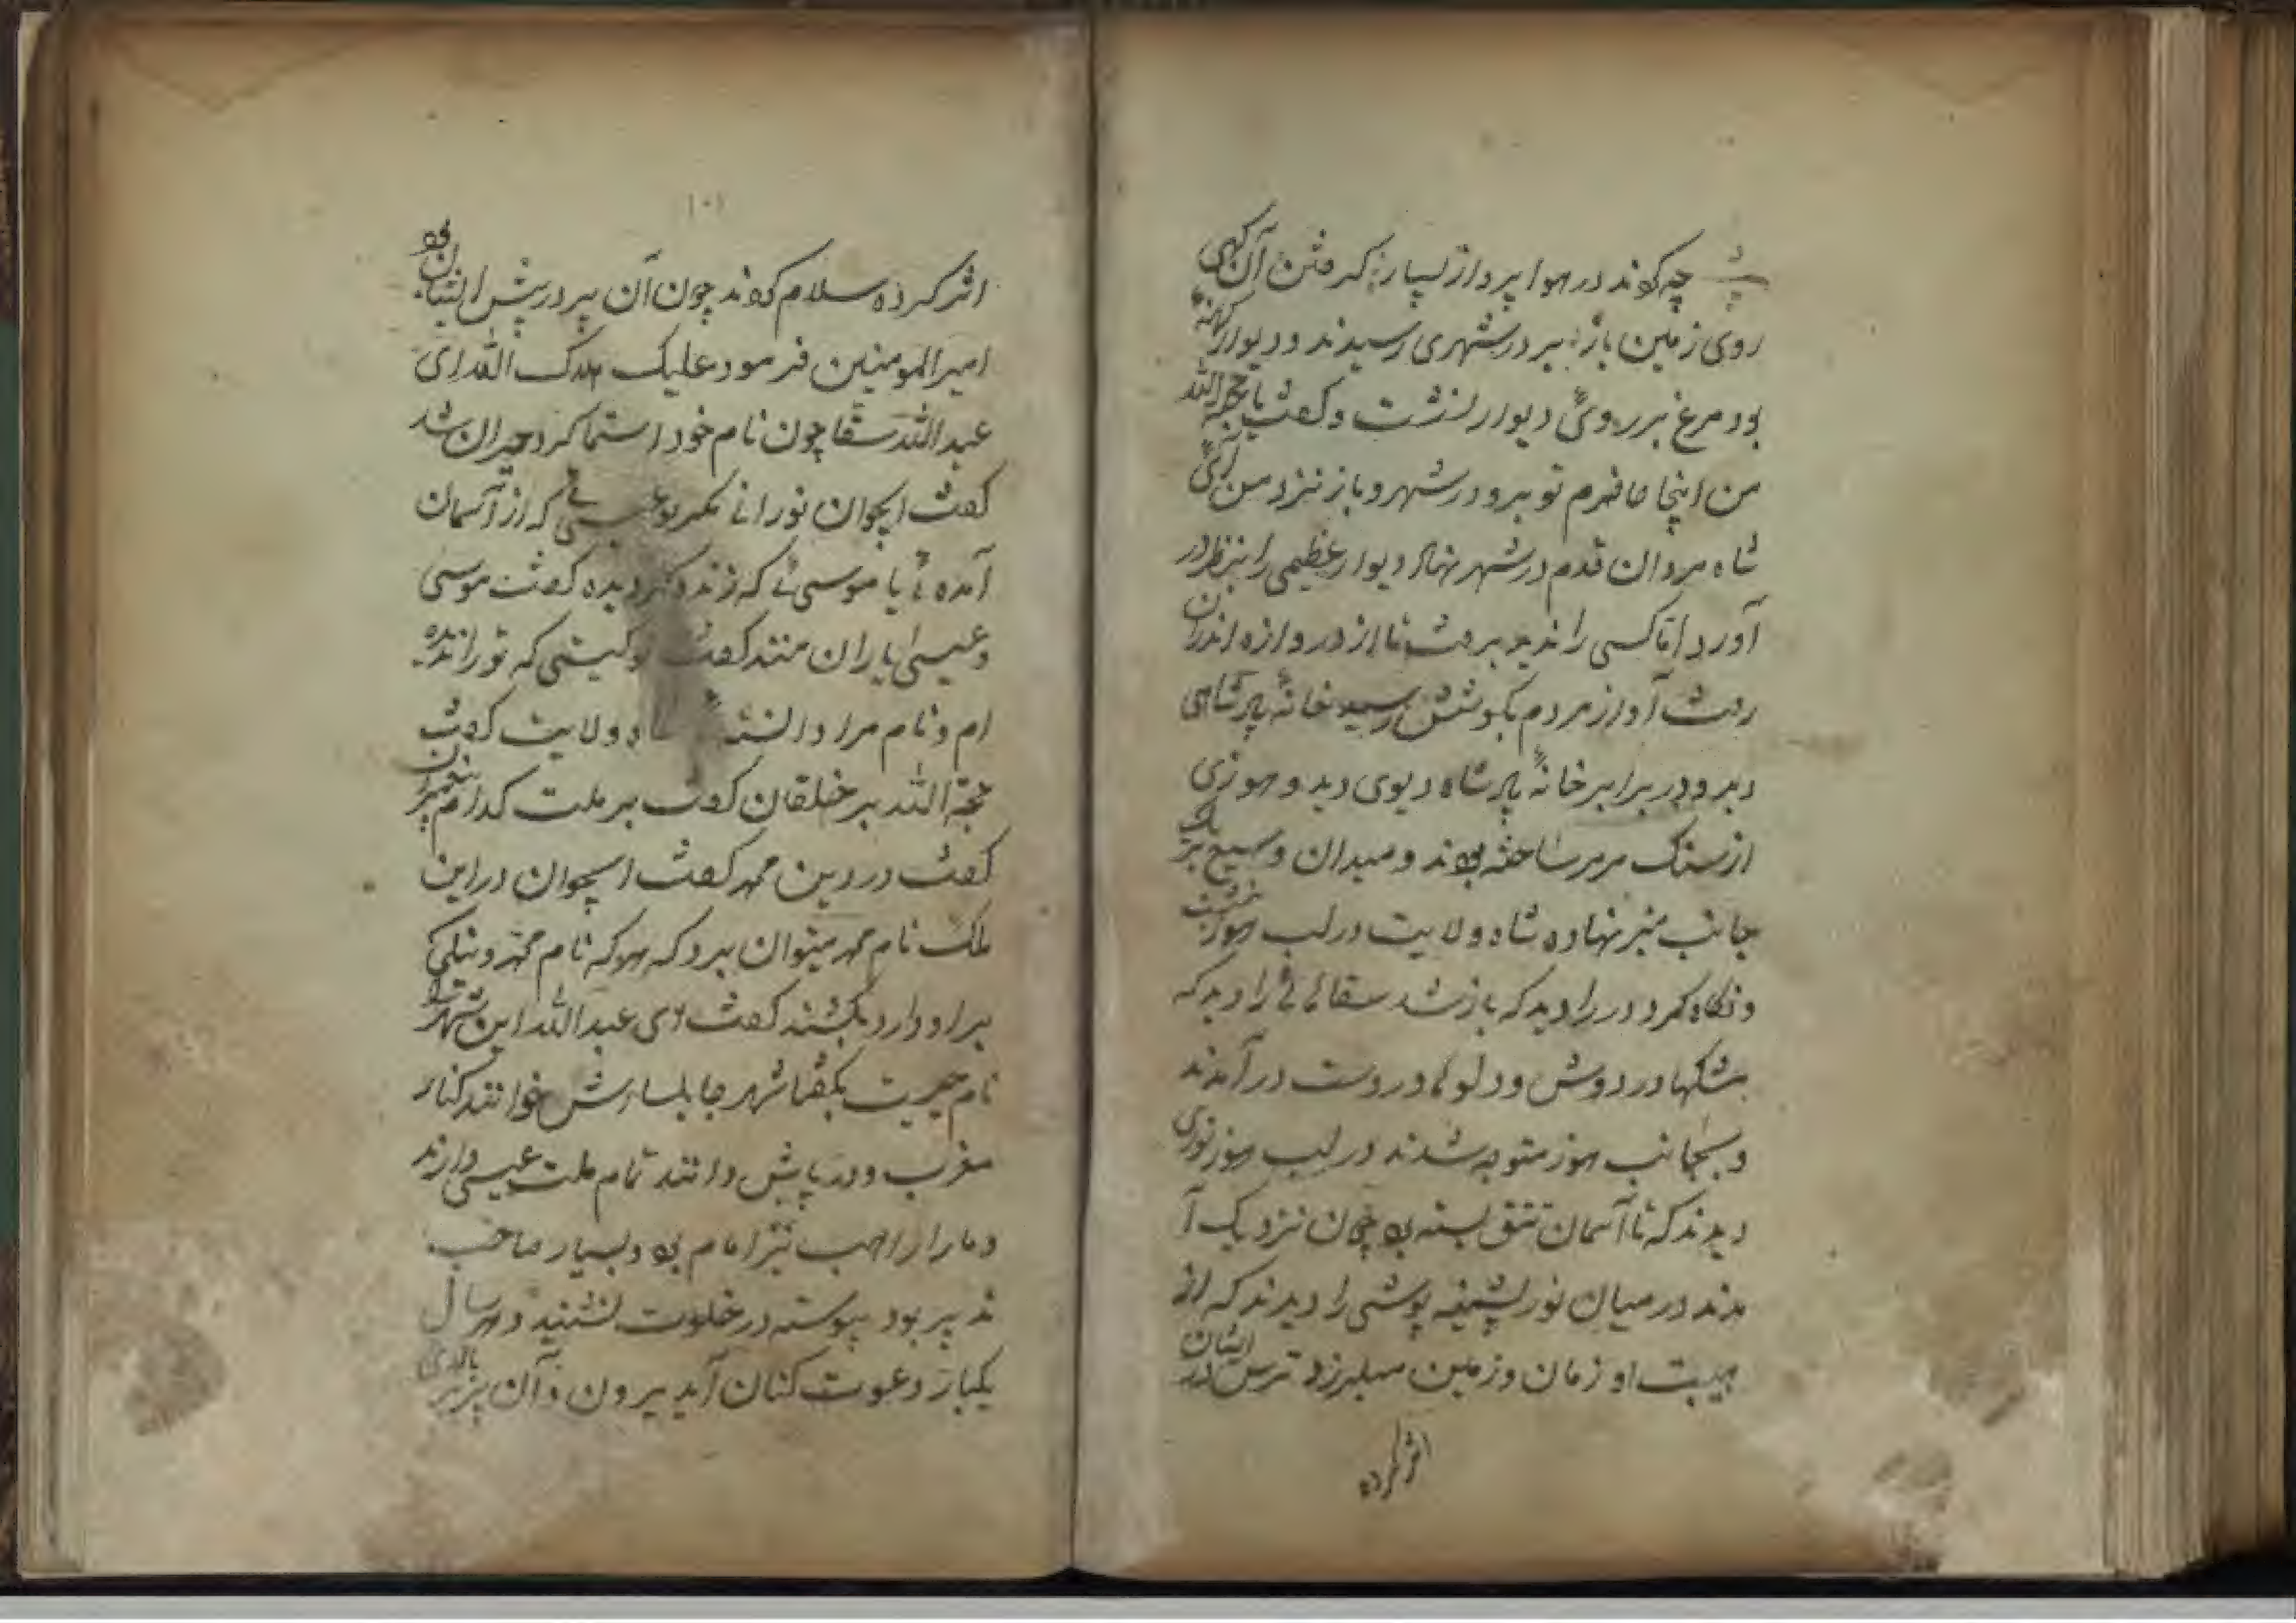 چه کونند در هوا پرواز بسیار کرفتن آن کهی
روی زمین باز بر در شهری رسیدند و دیوار کهنه
بود مرغ بر روی دیوار نشست و کفت یا حجة الله
من اینجا حاضرم تو برو در شهر و باز نزد من آی
شاه مردان قدم در شهر نهاد دیوار عظیمی را بنظر در
آورد اما کسی را ندید برفت تا از دروازه اندران
رفت آواز مردم بکوشش رسید خانهٔ پادشاهی
دید و در برابر خانهٔ پادشاه دیوی دید و حوزی
از سنک مرمر ساخته بودند و میدان وسیع بر یک
جانب منبر نهاده شاه ولایت در لب حوز نشست
و نکاه کرد در را دید که باز شد سقائانی را دید که
مشکها در دوش و دلوها در دست در آمدند
و بجانب حوز متوجه شدند در لب حوز نوری
دیدند که تا آسمان تتق بسته بود چون نزدیک آ
مدند در میان نور پشمینه پوشی را دیدند که از
هیبت او زمان و زمین میلرزد ترس در ایشان
اثر کرده
۱۰۱
اثر کرده سلام کردند چون آن پیر در پیش ایشان بود
امیر المومنین فرمود علیک سلام الله ای
عبد الله سقا چون نام خود استماع کرد حیران شد
کفت ایجوان نورانی مکر تو عیسی که از آسمان
آمدهٔ یا موسیٔ که زنده کردیده کفت موسی
و عیسی یاران منند کفت تو کیستی که تو را ندیده
ام و نام مرا دانستی شاه ولایت کفت
حجة الله بر خلقان کفت بر ملت کدام پیغمبران
کفت در دین محمد کفت ایجوان در این
ملک نام محمد میتوان برد که هر که نام محمد و نیکی
بر او دارد بکشند کفت ای عبد الله این شهر را
نام چیست بکفتا شهر جابلسارش خوانند کنار
مغرب و در پایش دانند تمام ملت عیسی دارند
و ما را راهب نیز امام بود و بسیار صاحب
تدبیر بود پیوسته در خلوت نشیند و هر سال
یکبار دعوت کنان آید بیرون و آن پیر بر بالای